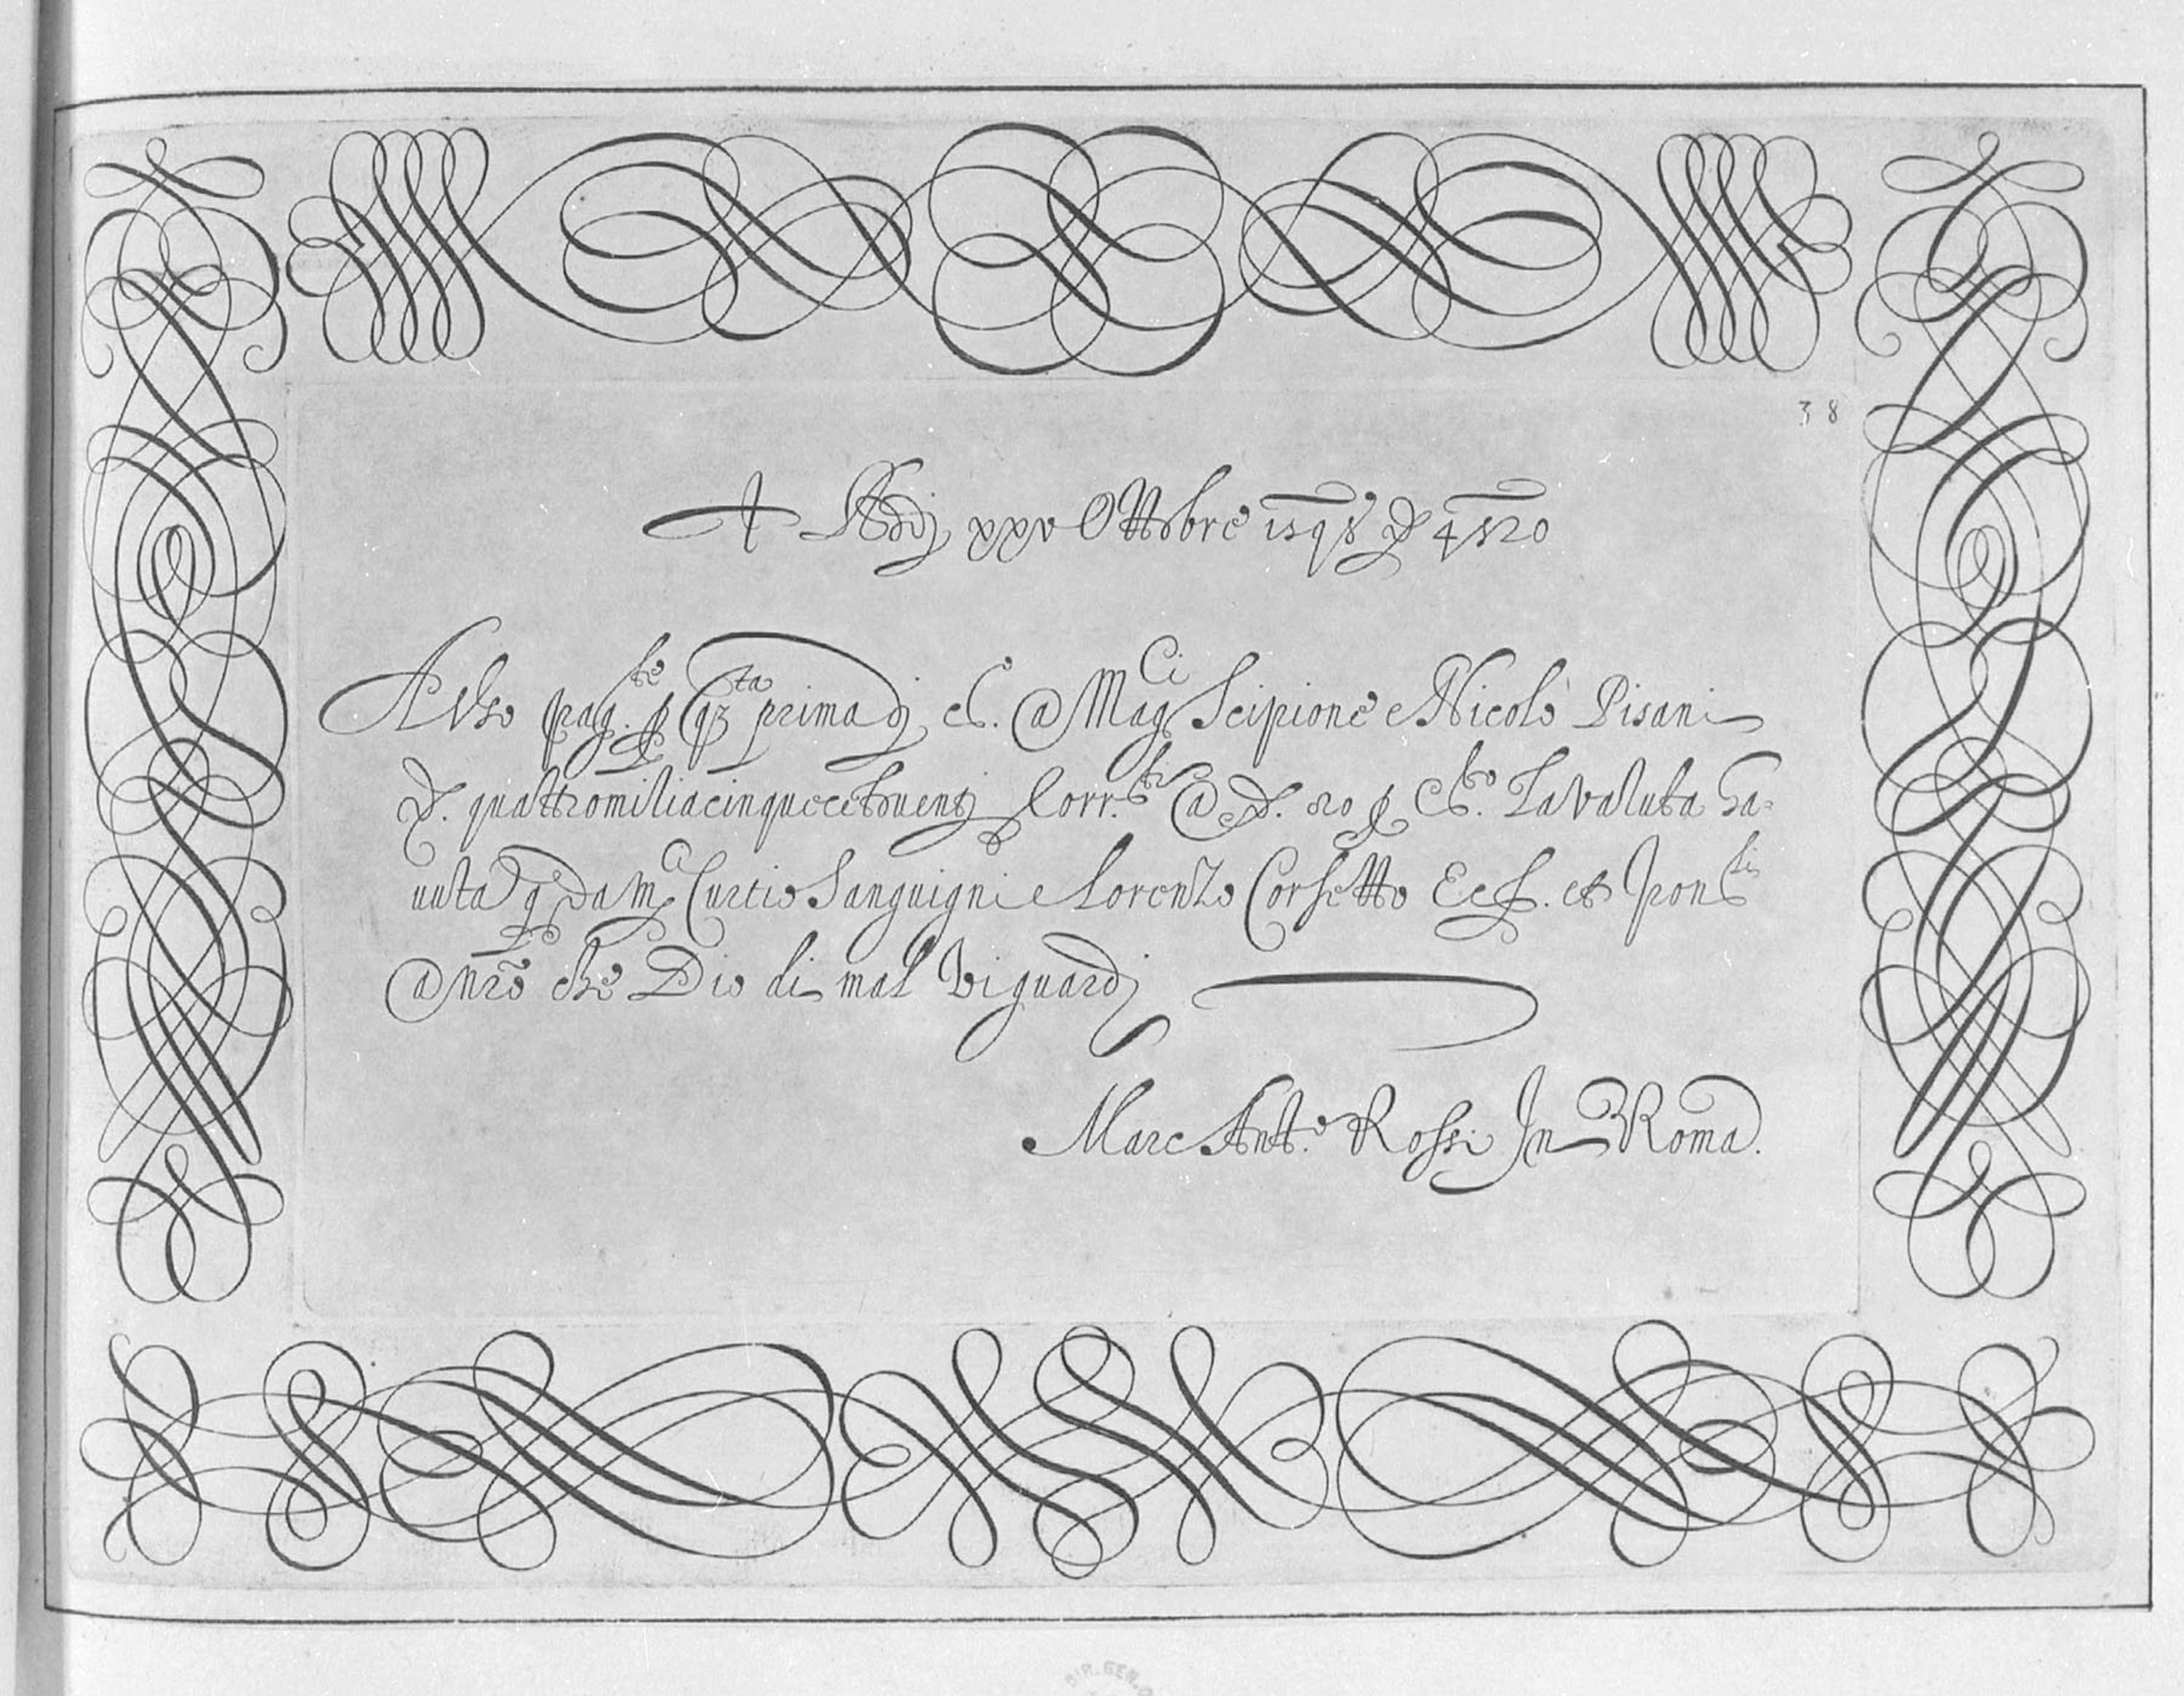 38
A Adij xxv Ottobre 1598 ∇ 4520
A Uso pag.te p q.ta prima di C. @ Mag.ci Scipione e Nicolò Pisani
∇. quattromiliacinquecētouenti Corr.ti @ ∇. 520 p C.to La valuta ha-
uuta q da m. Curtio Sanguigni e Lorenzo Corsetto Ec. et pon.
@ nrō che Dio di mal vi guardi
Marc Ant.o Rossi In Roma.
DIR. GEN.